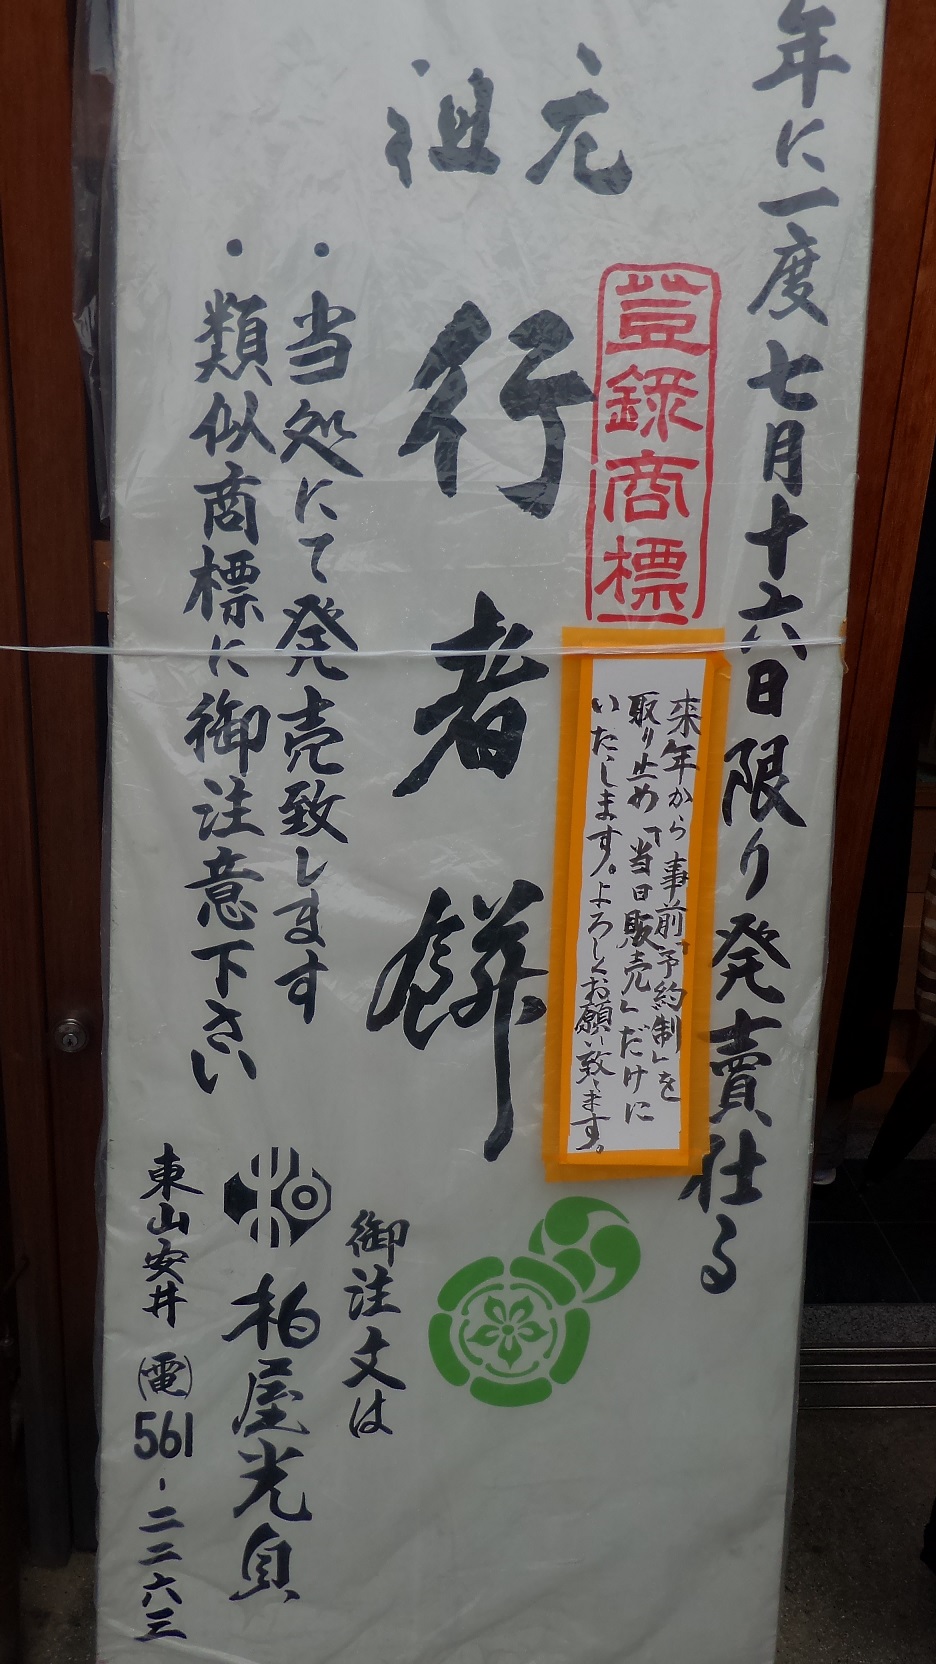 年に一度七月十六日限り発賣仕る
登録商標
来年から「事前予約制」を
取り止め「当日販売」だけに
いたします。よろしくお願い致します。
元祖
行者餅
・当処にて発売致します
・類似商標に御注意下さい
御注文は
柏
柏屋光貞
東山安井 ㊀561-二二六三